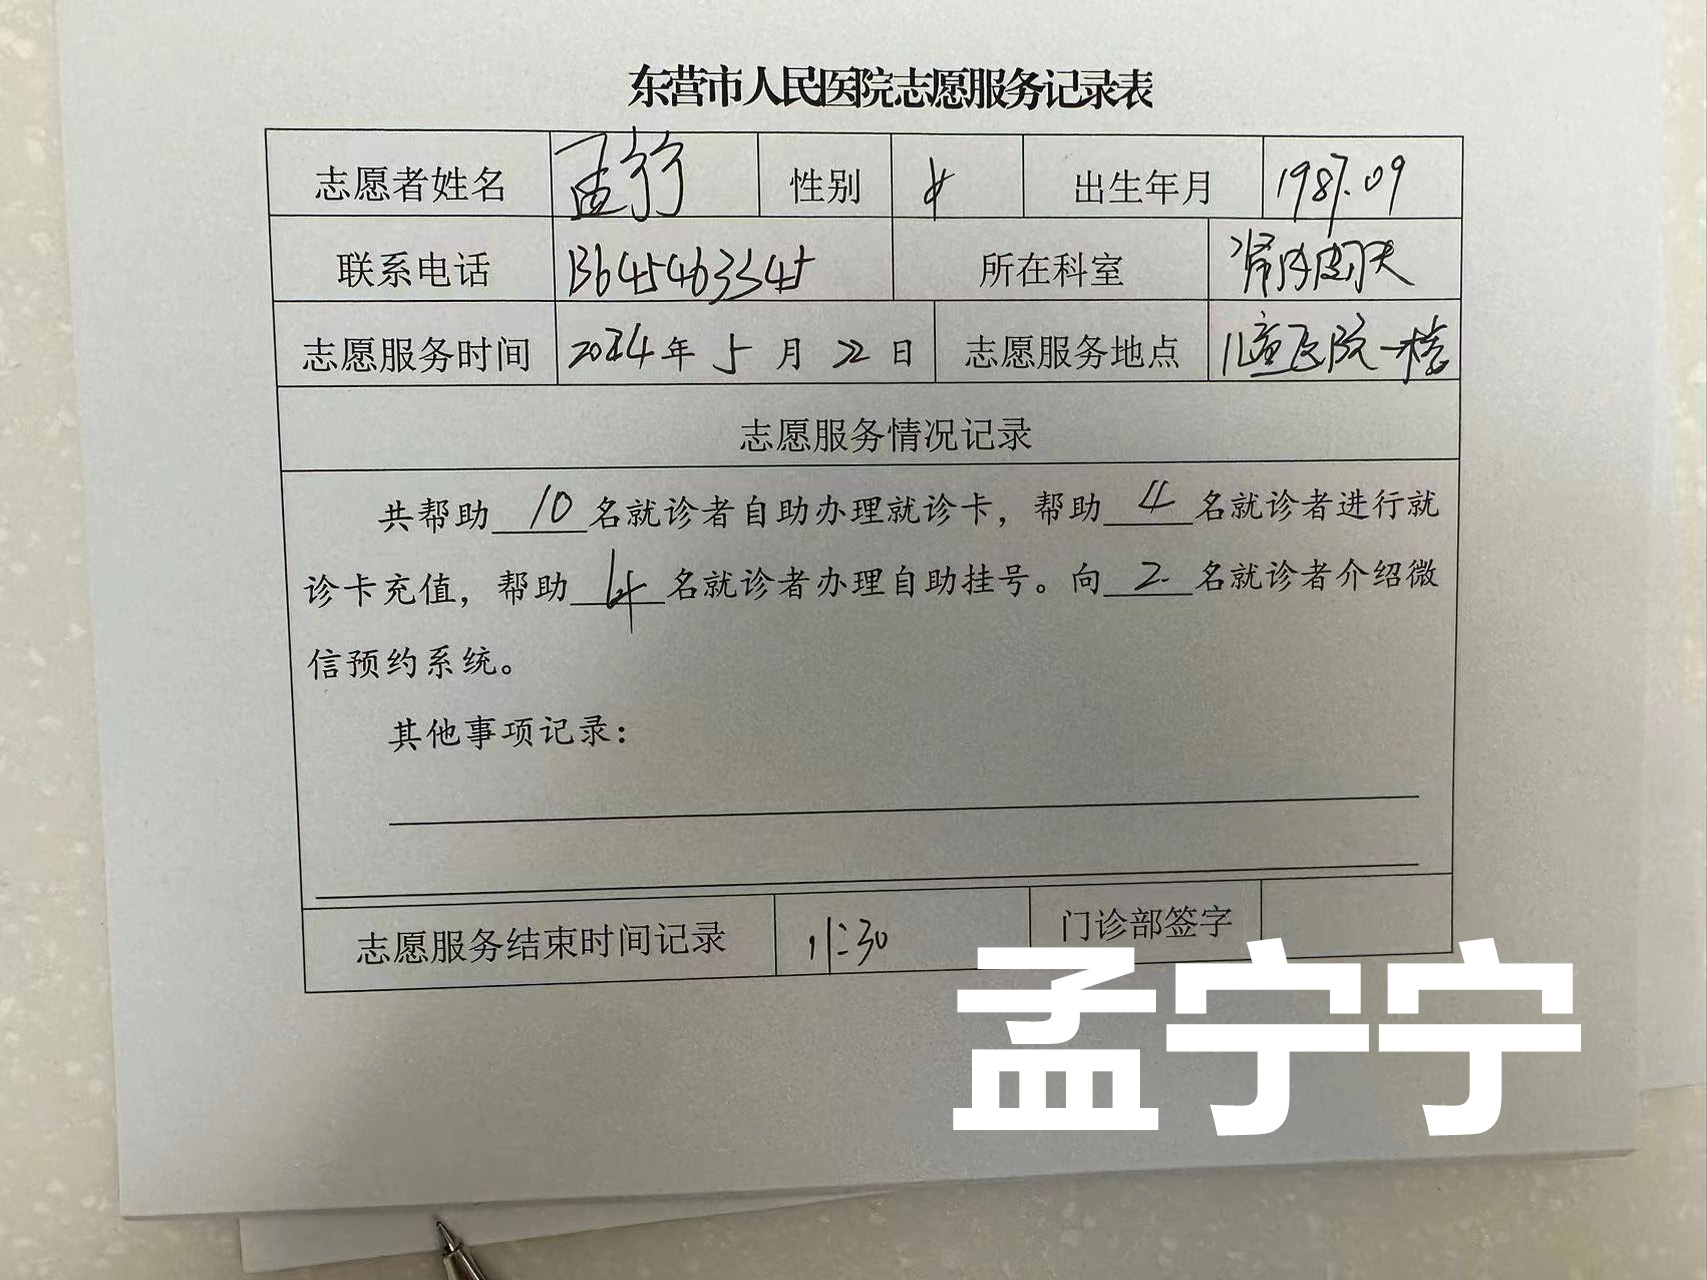 东营市人民医院志愿服务记录表
志愿者姓名 孟宁宁 性别 女 出生年月 1987.09
联系电话 13645463345 所在科室
志愿服务时间 2024年 5 月 22 日 志愿服务地点 儿童医院一楼
志愿服务情况记录
共帮助 10 名就诊者自助办理就诊卡，帮助 4 名就诊者进行就
诊卡充值，帮助 名就诊者办理自助挂号。向 2 名就诊者介绍微
信预约系统。
其他事项记录：
志愿服务结束时间记录 11:30 门诊部签字
孟宁宁